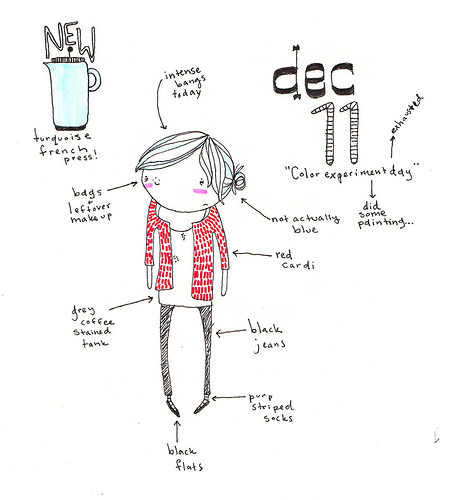 NEW
turquoise
french
press!
intense
bangs
today
dec
11
exhausted
"Color experiment day"
did
some
painting...
bags
+
leftover
makeup
not actually
blue
red
cardi
grey
coffee
stained
tank
black
jeans
purp
striped
socks
black
flats